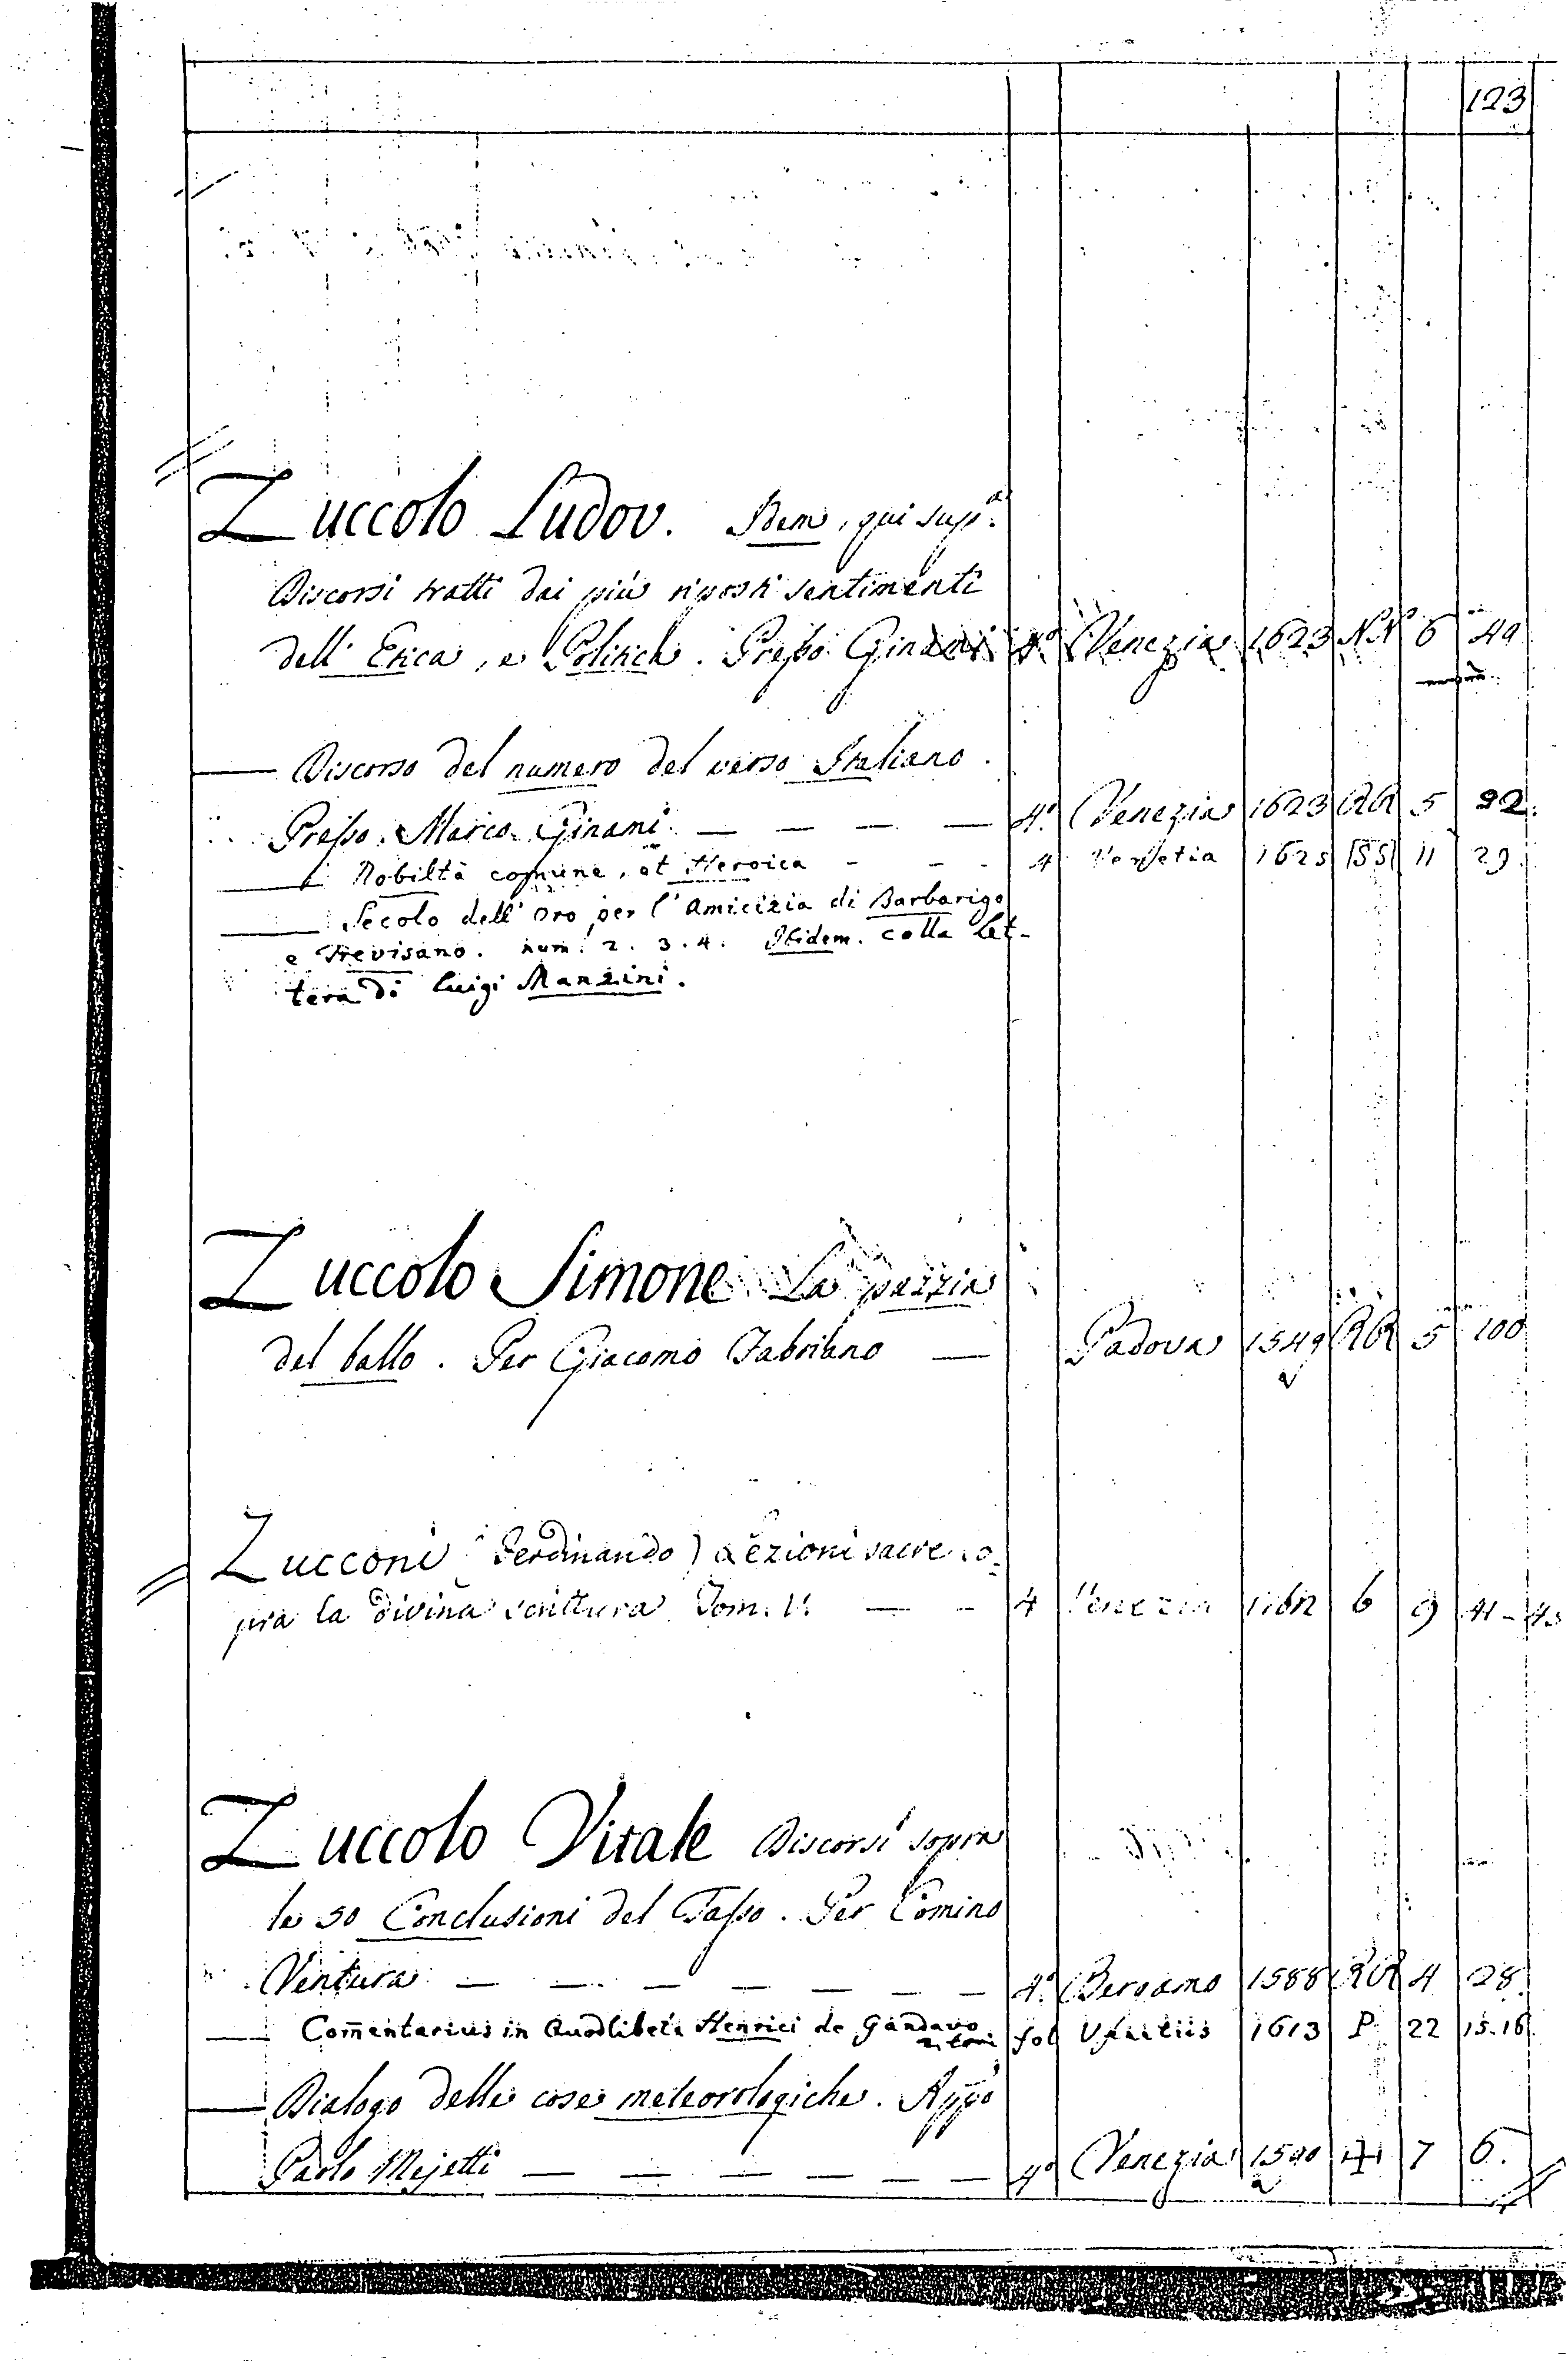 123
Zuccolo Ludov. Idem, qui sup.ª
Discorsi tratti dai più riposti sentimenti
dell' Etica, e Politich. Presso Ginami 4.º Venezia 1623 NN 6 49
— Discorso del numero del verso Italiano.
Presso Marco Ginami — — — — 4.º Venezia 1623 RR 5 92.
— Nobiltà comune, et Heroica - - - 4 Venetia 1625 SS 11 29.
— Secolo dell' Oro per l'Amicizia di Barbarigo
e Trevisano. num. 2. 3. 4. Ibidem. colla let-
tera di Luigi Manzini.
Zuccolo Simone La pazzia
del ballo. Per Giacomo Fabriano — Padova 1549 RR 5 100
Zucconi (Ferdinando) Lezioni sacre so-
pra la divina scrittura Tom. V. — - 4 Venezia 6 9 41-45
Zuccolo Vitale Discorsi sopra
le 50 Conclusioni del Tasso. Per Comino
Ventura — — — — — — — 4.º Bergamo 1588 RR 4 28.
— Com̃entarius in Quodlibeta Henrici de Gandavo
2. tomi fol 1613 P. 22 15.16
— Dialogo delle cose meteorologiche. Appº
Paolo Mejetti — — — — — — — 4º Venezia 1590 H 7 6.